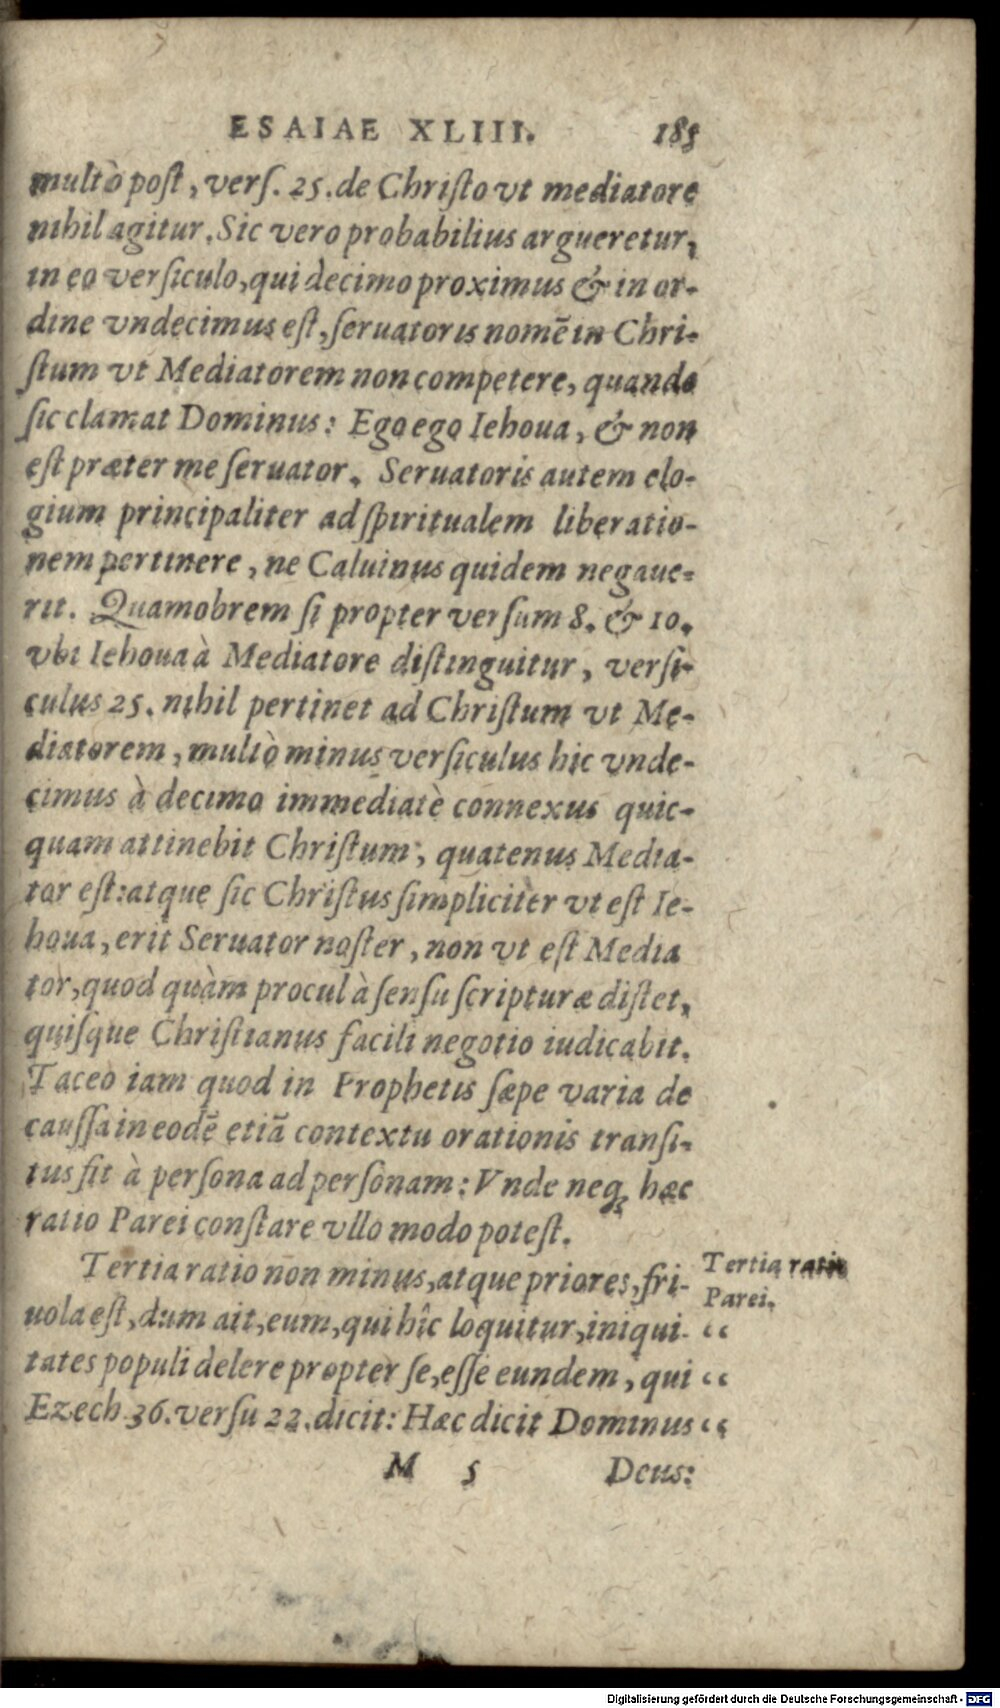 ESAIAE XLIII. 185
multò post, vers. 25. de Christo vt mediatore
nihil agitur. Sic vero probabilius argueretur,
in eo versiculo, qui decimo proximus & in or-
dine vndecimus est, seruatoris nomē in Chri-
stum vt Mediatorem non competere, quando
sic clamat Dominus: Ego ego Iehoua, & non
est præter me seruator. Seruatoris autem elo-
gium principaliter ad spiritualem liberatio-
nem pertinere, ne Caluinus quidem negaue-
rit. Quamobrem si propter versum 8. & 10.
vbi Iehoua à Mediatore distinguitur, versi-
culus 25. nihil pertinet ad Christum vt Me-
diatorem, multò minus versiculus hic vnde-
cimus à decimo immediatè connexus quic-
quam attinebit Christum, quatenus Media-
tor est: atque sic Christus simpliciter vt est Ie-
houa, erit Seruator noster, non vt est Media
tor, quod quàm procul à sensu scripturæ distet,
quisque Christianus facili negotio iudicabit.
Taceo iam quod in Prophetis sæpe varia de
caussa in eodē etiā contextu orationis transi-
tus fit à persona ad personam: Vnde neq; hæc
ratio Parei constare vllo modo potest.
Tertia ratio non minus, atque priores, fri-
uola est, dum ait, eum, qui hîc loquitur, iniqui-
tates populi delere propter se, esse eundem, qui
Ezech 36. versu 22. dicit: Hæc dicit Dominus
Tertia ratio
Parei.
“
“
“
M 5 Deus:
Digitalisierung gefördert durch die Deutsche Forschungsgemeinschaft - DFG